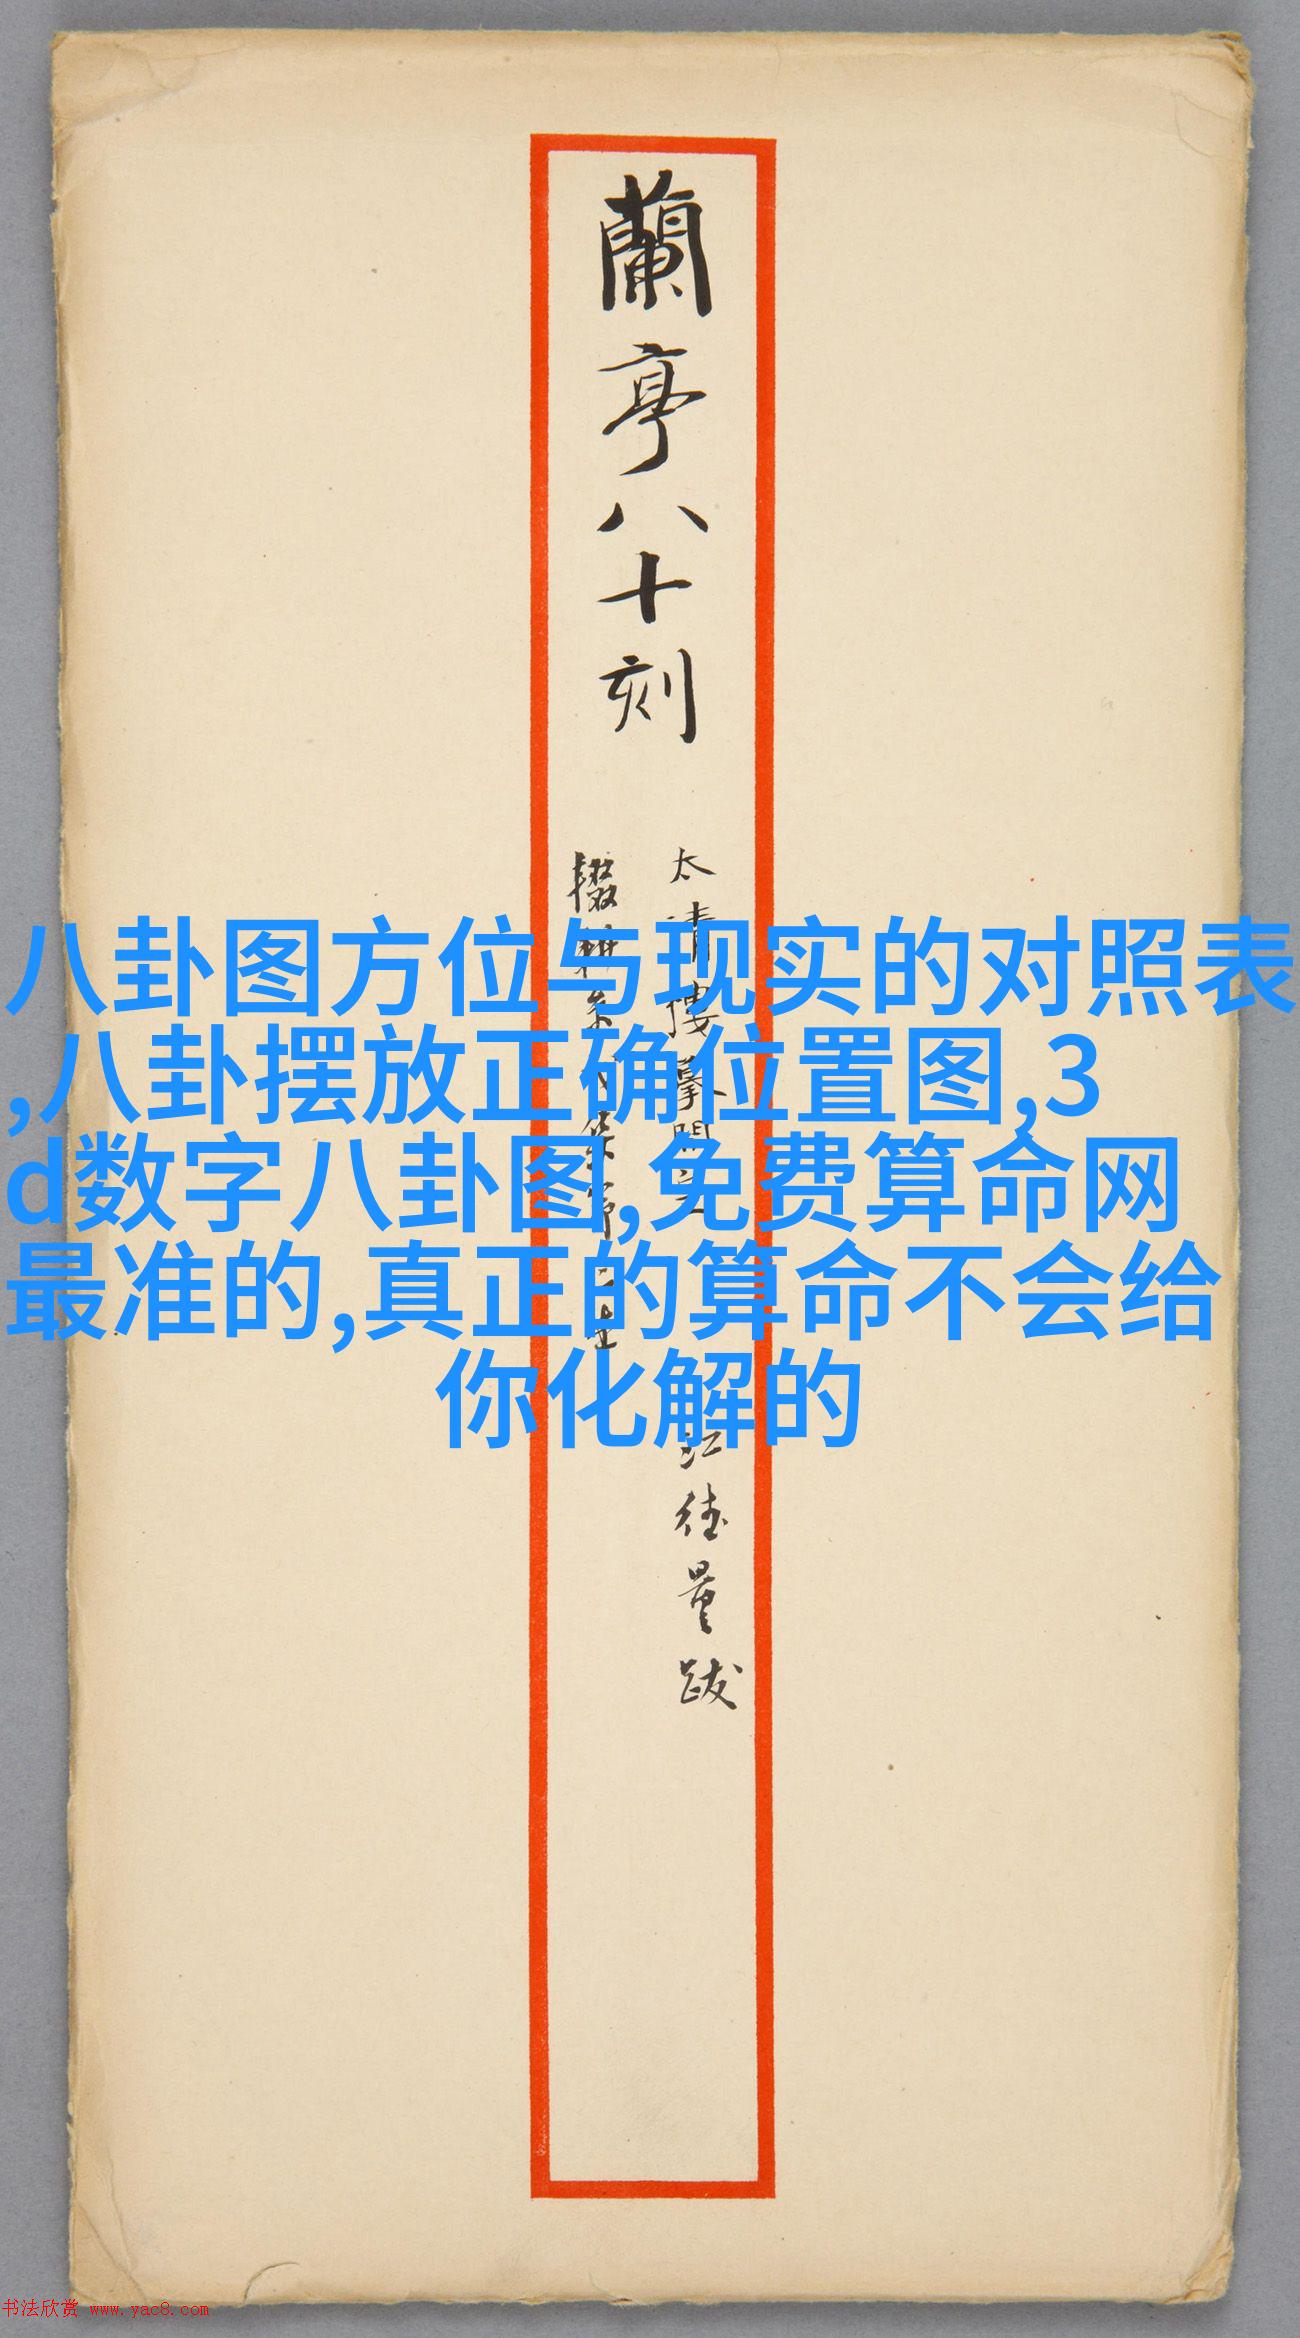 蘭亭八十刻
太清樓摹開皇
江德量跋
八卦图方位与现实的对照表
,八卦摆放正确位置图,3
d数字八卦图,免费算命网
最准的,真正的算命不会给
你化解的
书法欣赏 www.yac8.com